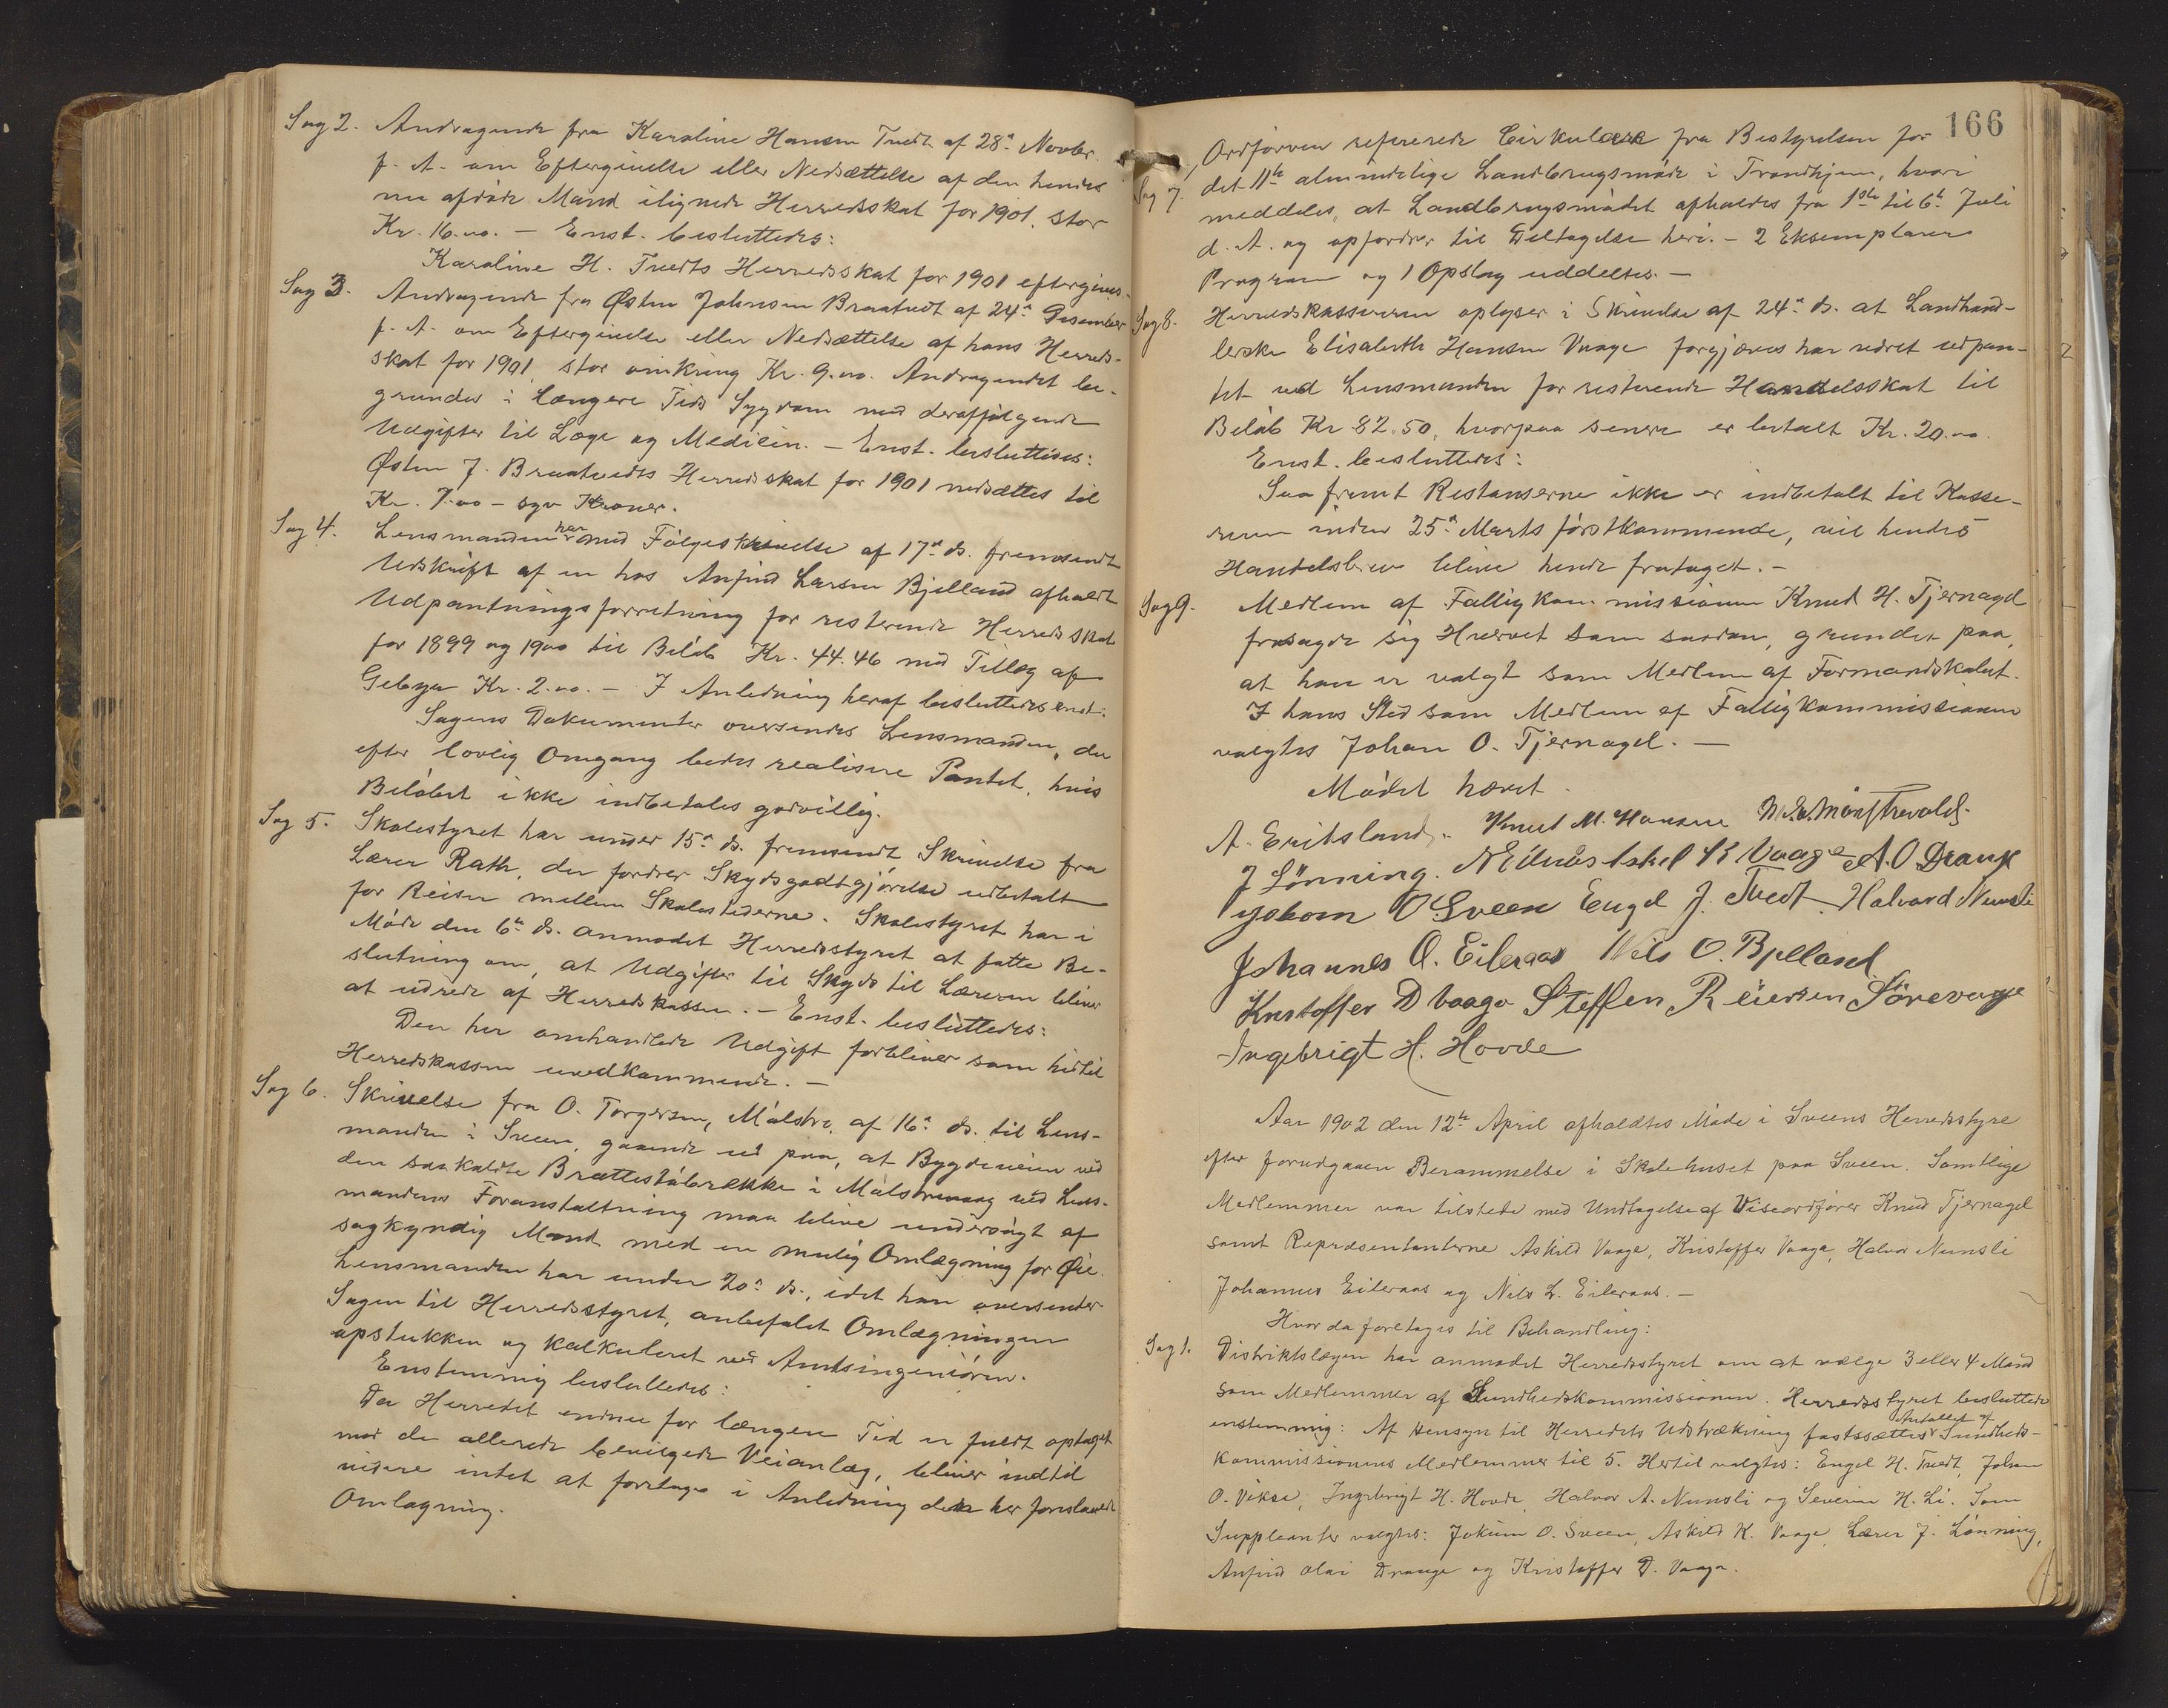 Sag 2. Andragende fra Karoline Hansen Tvedt af 28de Novbr.
f. A. om Eftergivelse eller Nedsættelse af den hendes
nu afdøde Mand ilignede Herredsskat for 1901, stor
Kr. 16.00. – Enst. besluttedes:
Karoline H. Tvedts Herredsskat for 1901 eftergives.
Sag 3. Andragende fra Østen Johnsen Braatvedt af 24de Desember
f. A. om Eftergivelse eller Nedsættelse af hans Herreds-
skat for 1901, stor omkring Kr. 9.00. Andragendet be-
grundes i længere Tids Sygdom med deraffølgende
Udgifter til Læge og Medicin. – Enst. besluttedes:
Østen J. Braatvedts Herredsskat for 1901 nedsættes til
Kr. 7.00 – syv Kroner.
Sag 4. Lensmanden har med Følgeskrivelse af 17de ds. fremsendt
Udskrift af en hos Anfind Larsen Bjelland afholdt
Udpantningsforretning for resterende Herredsskat
for 1899 og 1900 til Beløb Kr. 44.46 med Tillæg af
Gebyr Kr. 2.00. – I Anledning heraf besluttedes enst.:
Sagens Dokumenter oversendes Lensmanden, der
efter lovlig Omgang bedes realisere Pantet, hvis
Beløbet ikke indbetales godvillig.
Sag 5. Skolestyret har under 15de ds. fremsendt Skrivelse fra
Lærer Rath, der fordrer Skydsgodtgjørelse udbetalt
for Reiser mellem Skolestederne. Skolestyret har i
Møde den 6te ds. anmodet Herredsstyret at fatte Be-
slutning om, at Udgifter til Skyds til Læreren bliver
at udrede af Herredskassen. – Enst. besluttedes:
Den her omhandlede Udgift forbliver som hidtil
Herredskassen uvedkommende. –
Sag 6. Skrivelse fra O. Torgersen, Målstre, af 16de ds. til Lens-
manden i Sveen, gaaende ud paa, at Bygdeveien ved
den saakaldte Brættestøbrække i Målstrevaag ved Lens-
mandens Foranstaltning maa blive undersøgt af
sagkyndig Mand med en mulig Omlægning for Øie.
Lensmanden har under 20de ds., idet han oversender
Sagen til Herredsstyret, anbefalet Omlægningen
opstukken og kalkuleret ved Amtsingeniøren.
Enstemmig besluttedes:
Da Herredet endnu for længere Tid er fuldt optaget
med de allerede bevilgede Veianlæg, bliver indtil
videre intet at foretage i Anledning den her foreslaaede
Omlægning.
166
Sag 7. Ordføreren refererede Cirkulære fra Bestyrelsen for
det 11te almindelige Landbrugsmøde i Trondhjem, hvori
meddeles, at Landbrugsmødet afholdes fra 1ste til 6te Juli
d. A. og opfordrer til Deltagelse heri. – 2 Eksemplarer
Program og 1 Opslag uddeltes. –
Sag 8. Herredskassereren oplyser i Skrivelse af 24de ds. at Landhand-
lerske Elisabeth Hansen Vaage forgjæves har været udpan-
tet ved Lensmanden for resterende Handelsskat til
Beløb Kr 82.50, hvorpaa senere er betalt Kr. 20.00.
Enst. besluttedes:
Saafremt Restanserne ikke er indbetalt til Kasse-
reren inden 25de Marts førstkommende, vil hendes
Handelsbrev blive hende frataget. –
Sag 9. Medlem af Fattigkommissionen Knud H. Tjernagel
frasagde sig Hvervet som saadan, grundet paa,
at han er valgt som Medlem af Formandskabet.
I hans Sted som Medlem af Fattigkommissionen
valgtes Johan O. Tjernagel. –
Mødet hævet.
A. Eritsland. Knut M. Hansen
J Lönning. Vaage A. O Drange
O Sveen Engel J. Tvedt. Halvard Nunsli
Johannes O. Eileraas Nils O. Bjelland
Kristoffer D Vaage Steffen Reiersen Sörevaage
Ingebrigt H. Hovde
Aar 1902 den 12te April afholdtes Møde i Sveens Herredsstyre
efter forudgaaen Berammelse i Skolehuset paa Sveen. Samtlige
Medlemmer var tilstede med Undtagelse af Viseordfører Knud Tjernagel
samt Repræsentanterne Askild Vaage, Kristoffer Vaage, Halvor Nunsli
Johannes Eileraas og Nils L. Eileraas. –
Hvor da foretoges til Behandling:
Sag 1. Distriktslægen har anmodet Herredsstyret om at vælge 3 eller 4 Mænd
som Medlemmer af Sundhedskommissionen. Herredsstyret besluttede
enstemmig: Af Hensyn til Herredets Udstrækning fastsættes Antallet af Sundheds-
kommissionens Medlemmer til 5. Hertil valgtes: Engel H. Tvedt, Johan
O. Vikse, Ingebrigt H. Hovde, Halvor A. Nunsli og Severin H. Li. Som
Suppleanter valgtes: Jokum O. Sveen, Askild K. Vaage, Lærer J. Lønning,
Anfind Olai Drange og Kristoffer D. Vaage.